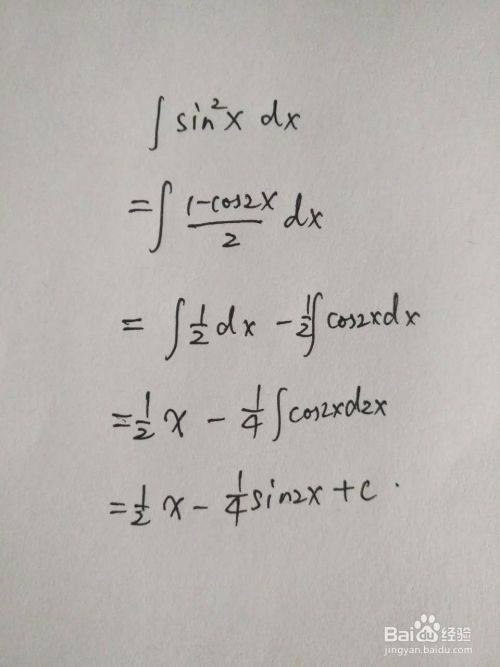 ∫ sin²x dx
= ∫ (1-cos2x)/2 dx
= ∫ 1/2 dx - 1/2 ∫ cos2xdx
= 1/2 x - 1/4 ∫ cos2xd2x
= 1/2 x - 1/4 sin2x + c .
Baidu经验
jingyan.baidu.com